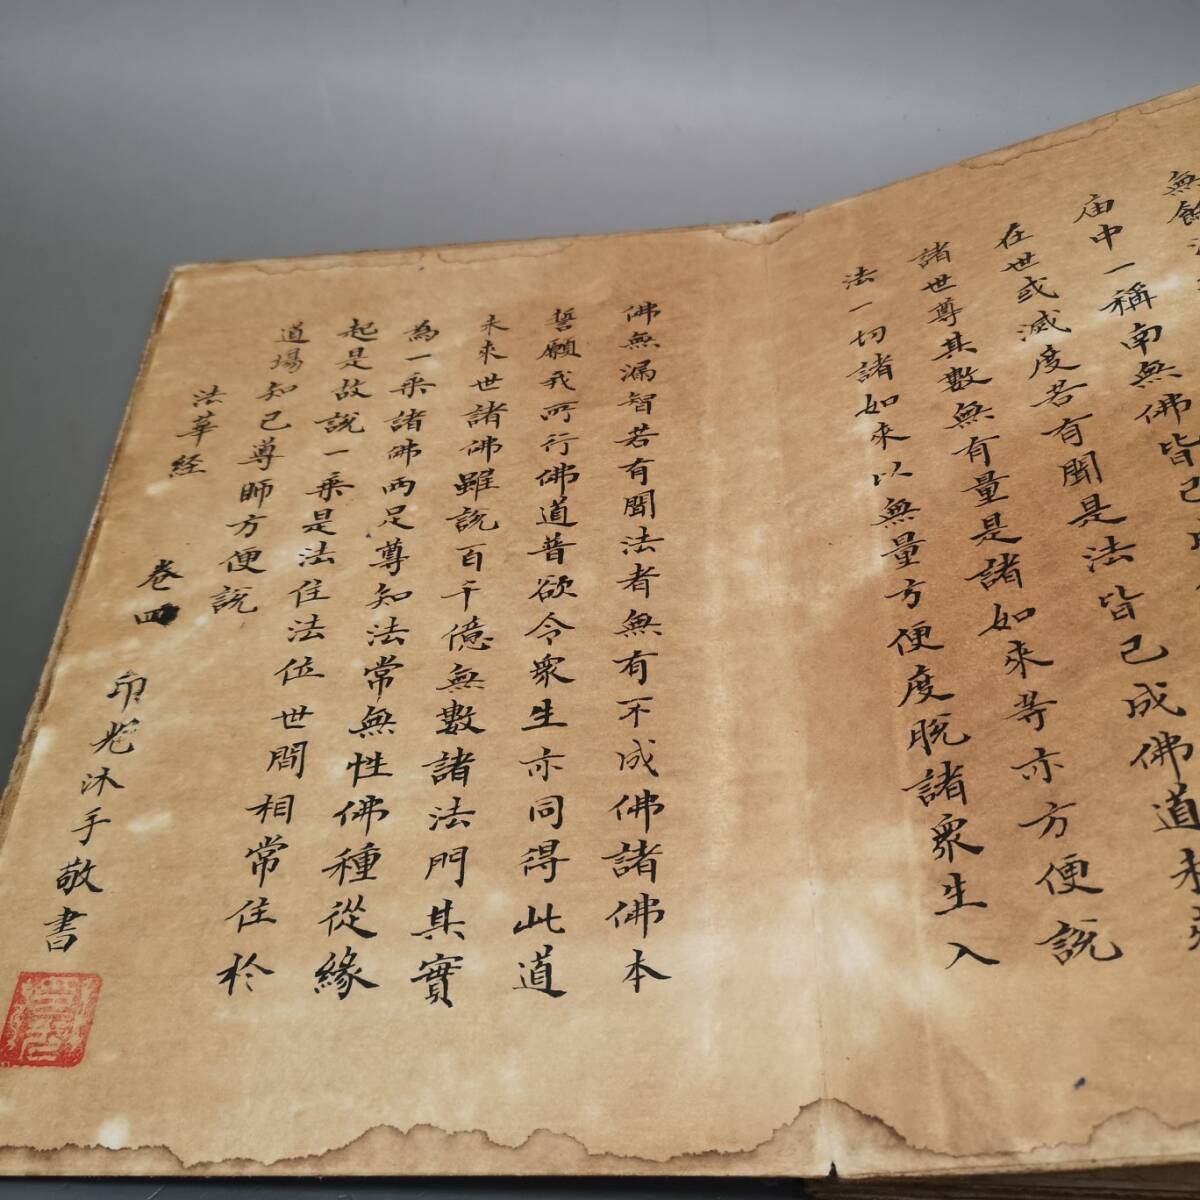 無餘
庙中一稱南無佛皆已
在世或滅度若有聞是法皆已成佛道未
諸世尊其數無有量是諸如來等亦方便說
法一切諸如來以無量方便度脫諸衆生入
佛無漏智若有聞法者無有不成佛諸佛本
誓願我所行佛道普欲令衆生亦同得此道
未來世諸佛雖說百千億無數諸法門其實
為一乘諸佛兩足尊知法常無性佛種從緣
起是故說一乘是法住法位世間相常住於
道場知已導師方便說
法華経
卷四
印光沐手敬書